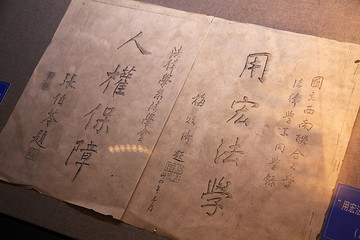 國立西南聯合大學
法律學系同學錄
用宏法學
梅貽琦題
法律學系法學會
人權保障
張伯苓題
用宏法